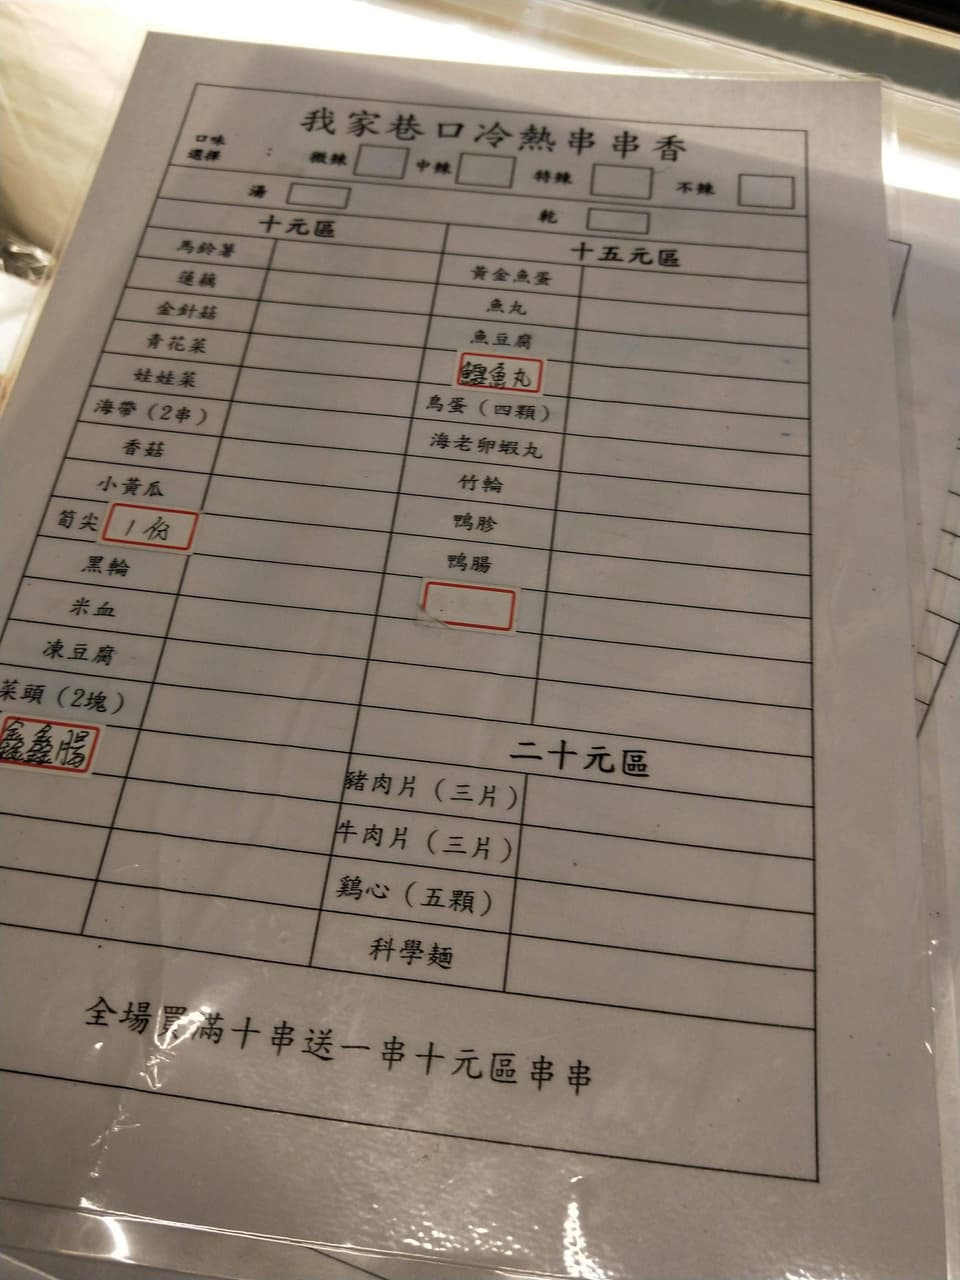 我家巷口冷熱串串香
口味選擇 : 微辣 中辣 特辣 不辣
湯 乾
十元區
馬鈴薯
蓮藕
金針菇
青花菜
娃娃菜
海帶（2串）
香菇
小黃瓜
筍尖 1份
黑輪
米血
凍豆腐
菜頭（2塊）
鑫鑫腸
十五元區
黃金魚蛋
魚丸
魚豆腐
鱈魚丸
鳥蛋（四顆）
海老卵蝦丸
竹輪
鴨胗
鴨腸
二十元區
豬肉片（三片）
牛肉片（三片）
鷄心（五顆）
科學麵
全場買滿十串送一串十元區串串